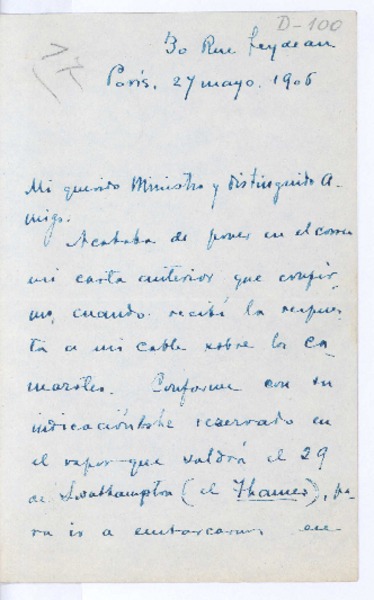 D-100
30 Rue Feydeau
París, 27 mayo. 1906
Mi querido Ministro y distinguido A-
migo.
Acababa de poner en el correo
mi carta anterior, que confir-
mo, cuando recibí la respues-
ta a mi cable sobre los ca-
marotes. Conforme con su
indicación he reservado en
el vapor que saldrá el 29
de Southampton (el Thames), pa-
ra ir a embarcarnos en